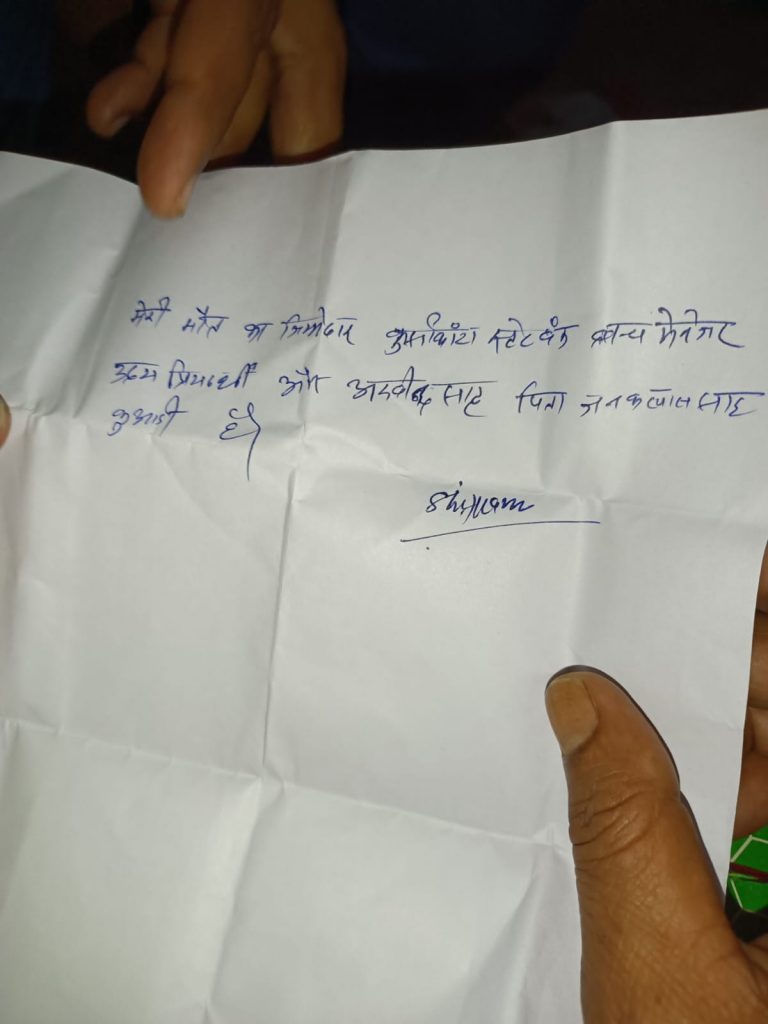 मेरी मौत का जिम्मेदार कुर्साकांटा स्टेट बैंक ब्रान्च मेनेजर
उदय प्रियदर्शी और अरवीन्द साह पिता जनक लाल साह
कुआड़ी है।
Shivam